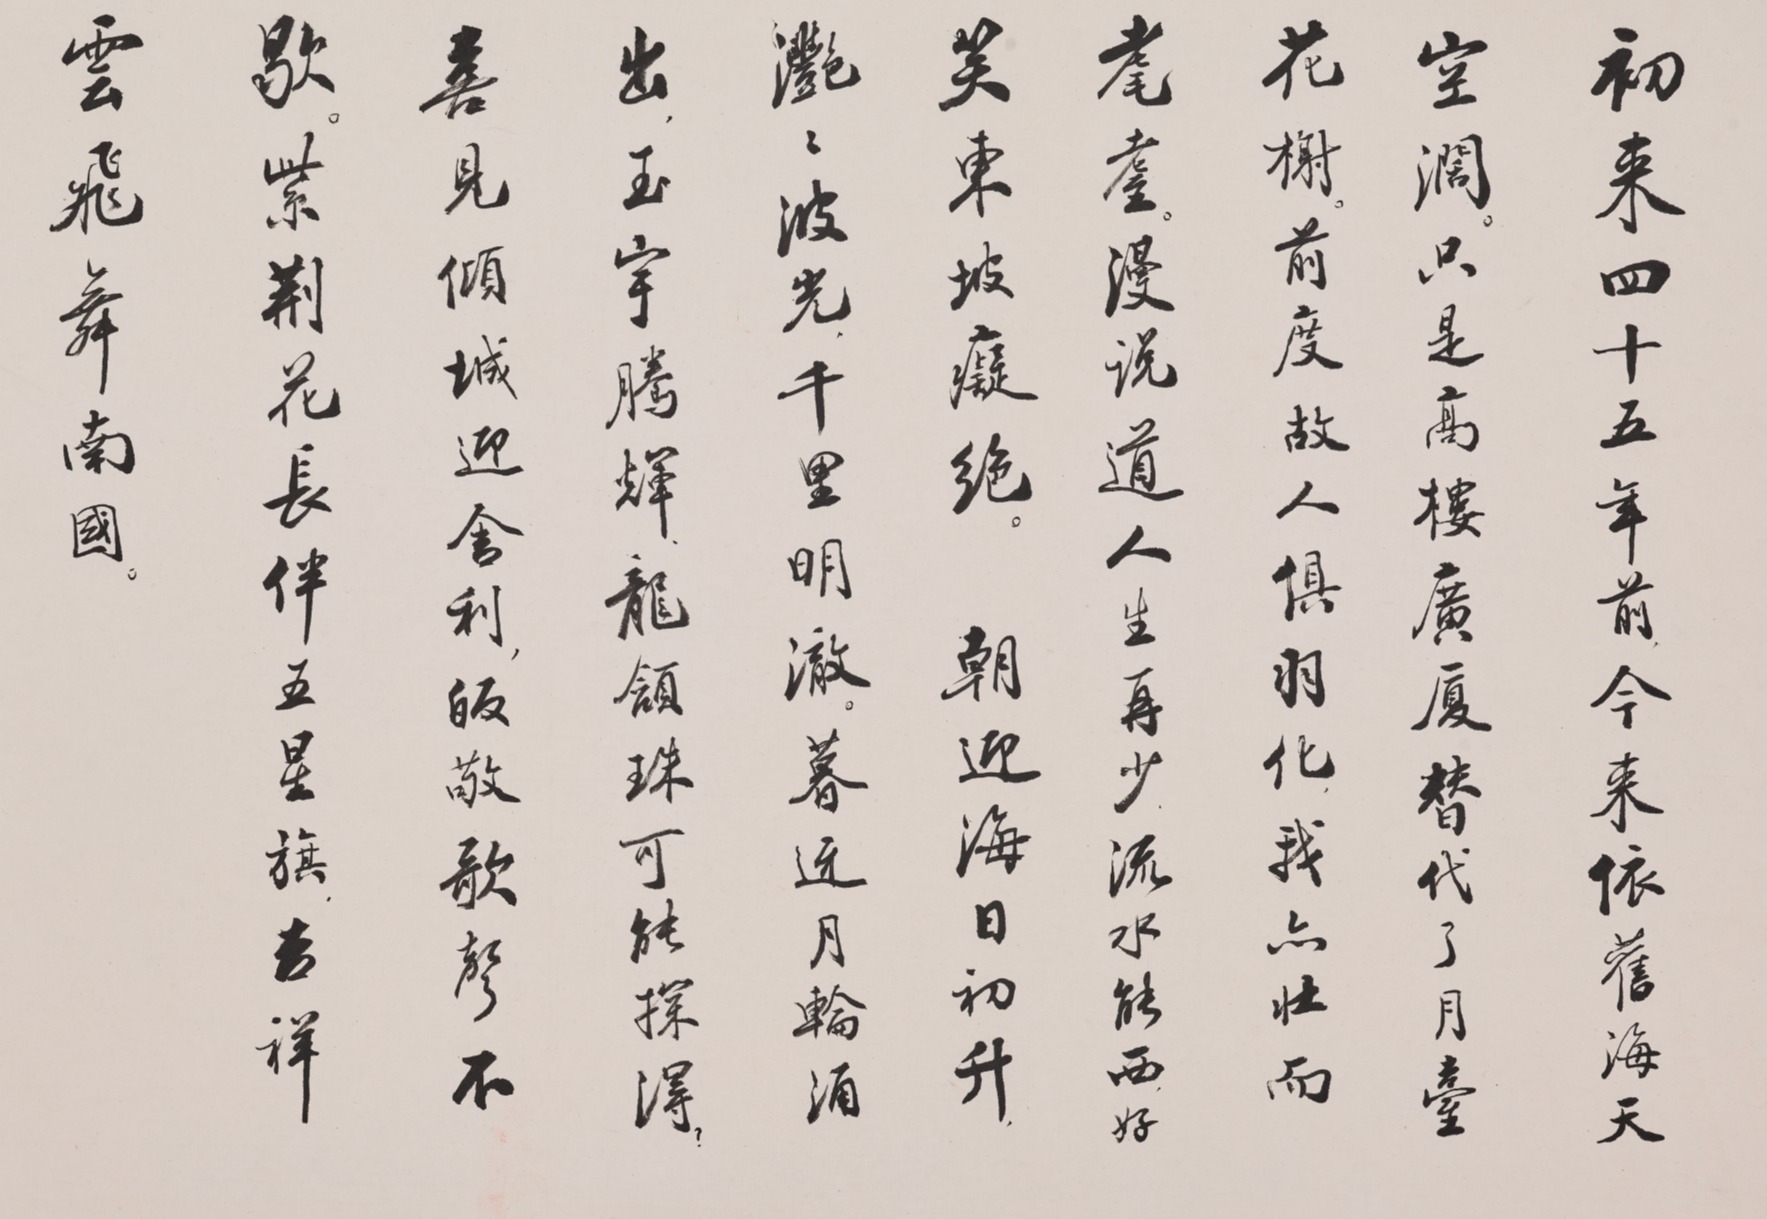 初来四十五年前，今来依舊海天
空濶。只是高樓廣厦替代了月臺
花榭。前度故人俱羽化，我亦壮而
耄耋。漫说道人生再少，流水能西，好
笑東坡癡绝。　朝迎海日初升，
灔〻波光，千里明澈。暮近月輪涌
出，玉宇腾輝，龍頷珠可能探得？
喜見傾城迎舍利，皈敬歌聲不
歇。紫荆花長伴五星旗，吉祥
雲飛舞南國。